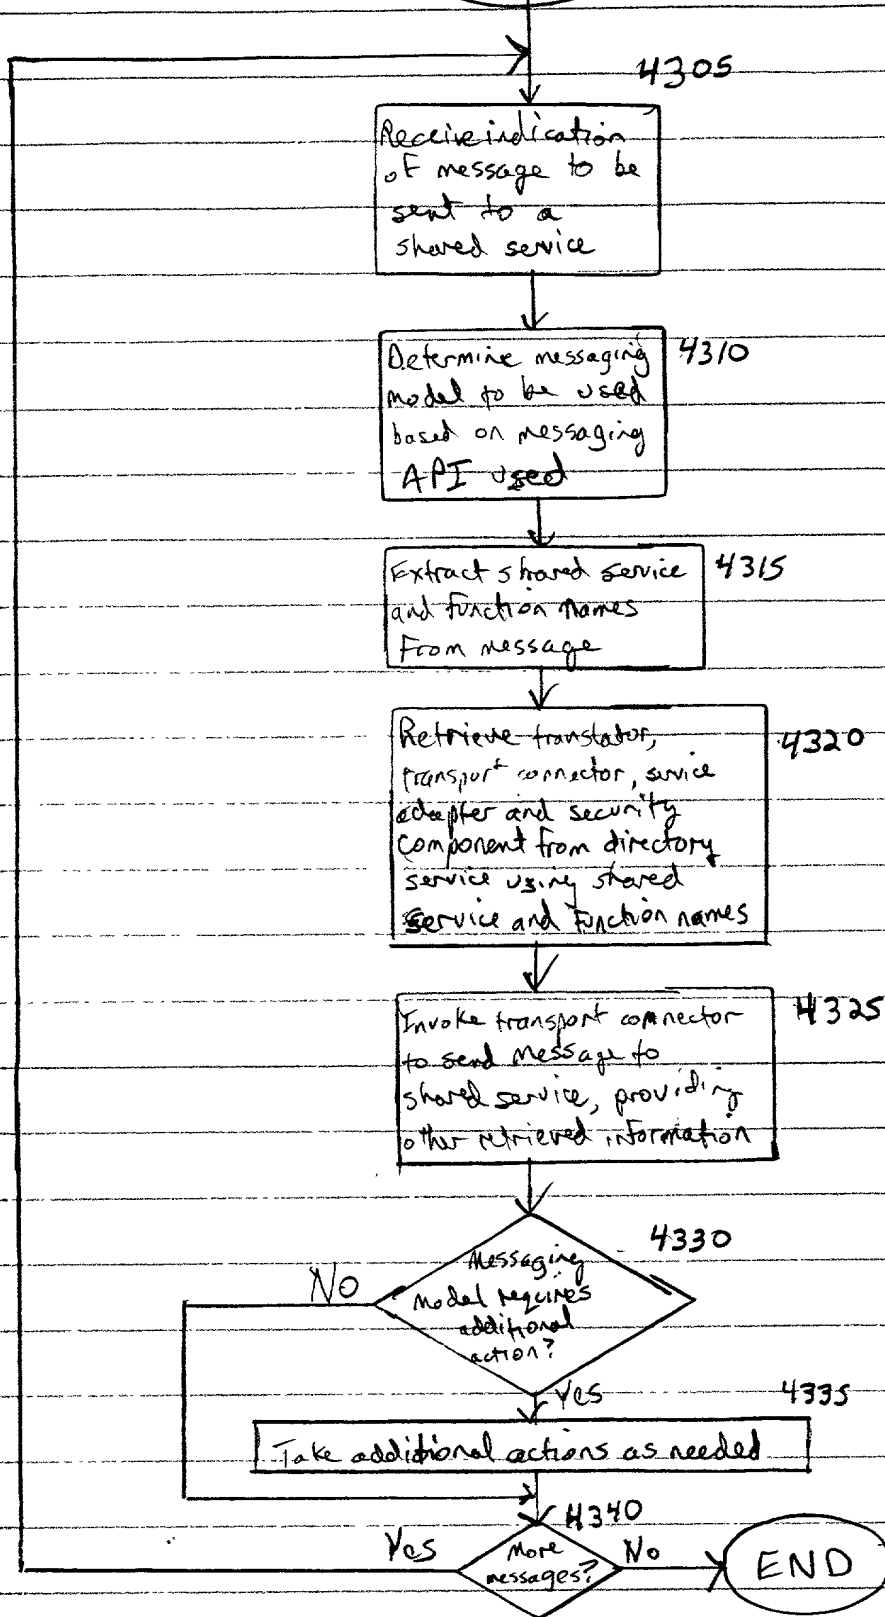 4305
Receive indication
of message to be
sent to a
shared service
4310
Determine messaging
model to be used
based on messaging
API used
4315
Extract shared service
and function names
From message
4320
Retrieve translator,
transport connector, service
adapter and security
component from directory
service using shared
service and function names
4325
Invoke transport connector
to send message to
shared service, providing
other retrieved information
4330
Messaging
model requires
additional
action?
No
Yes
4335
Take additional actions as needed
4340
More
messages?
Yes
No
END